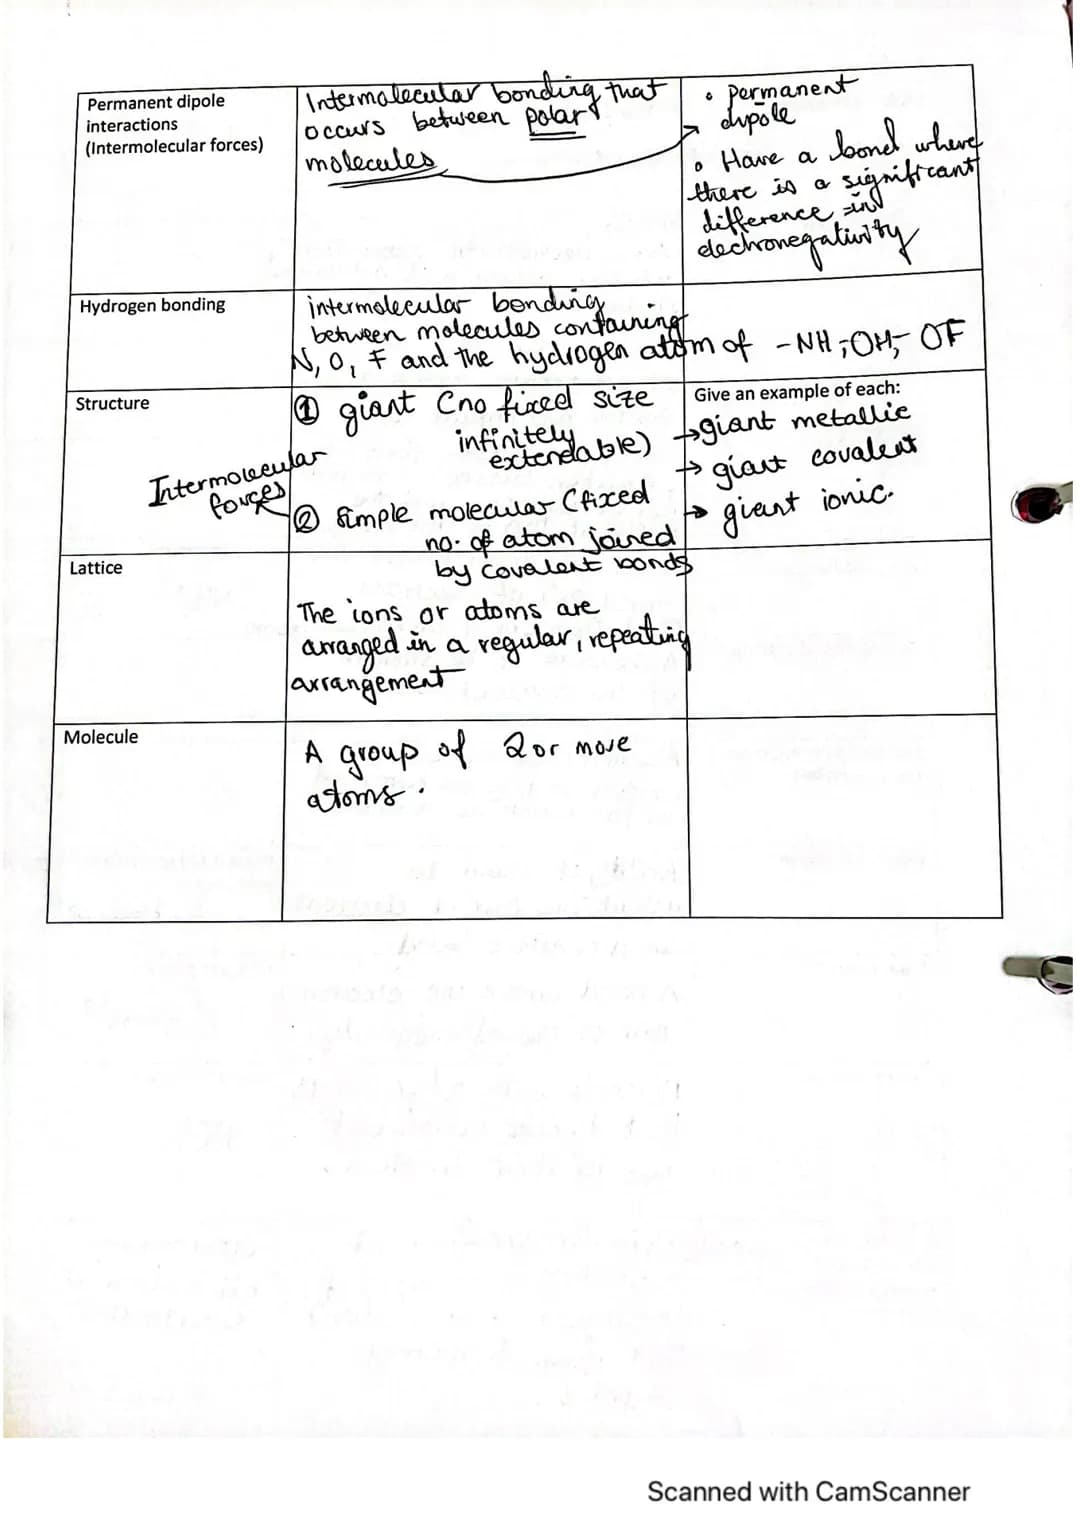 Permanent dipole
interactions
(Intermolecular forces)
Intermolecular bonding that
occurs between polar
molecules
• permanent
dipole
• Have a bond where
there is a significant
difference in
electronegativity
Hydrogen bonding
intermolecular bonding
between molecules containing
N, O, F and the hydrogen atom of -NH, OH, OF
Structure
① giant (no fixed size
infinitely
extendable)
Intermolecular
forces
② simple molecular (fixed
no. of atom joined
by covalent bonds
Give an example of each:
→ giant metallic
→ giant covalent
→ giant ionic.
Lattice
The ions or atoms are
arranged in a regular, repeating
arrangement
Molecule
A group of 2 or more
atoms.
Scanned with CamScanner